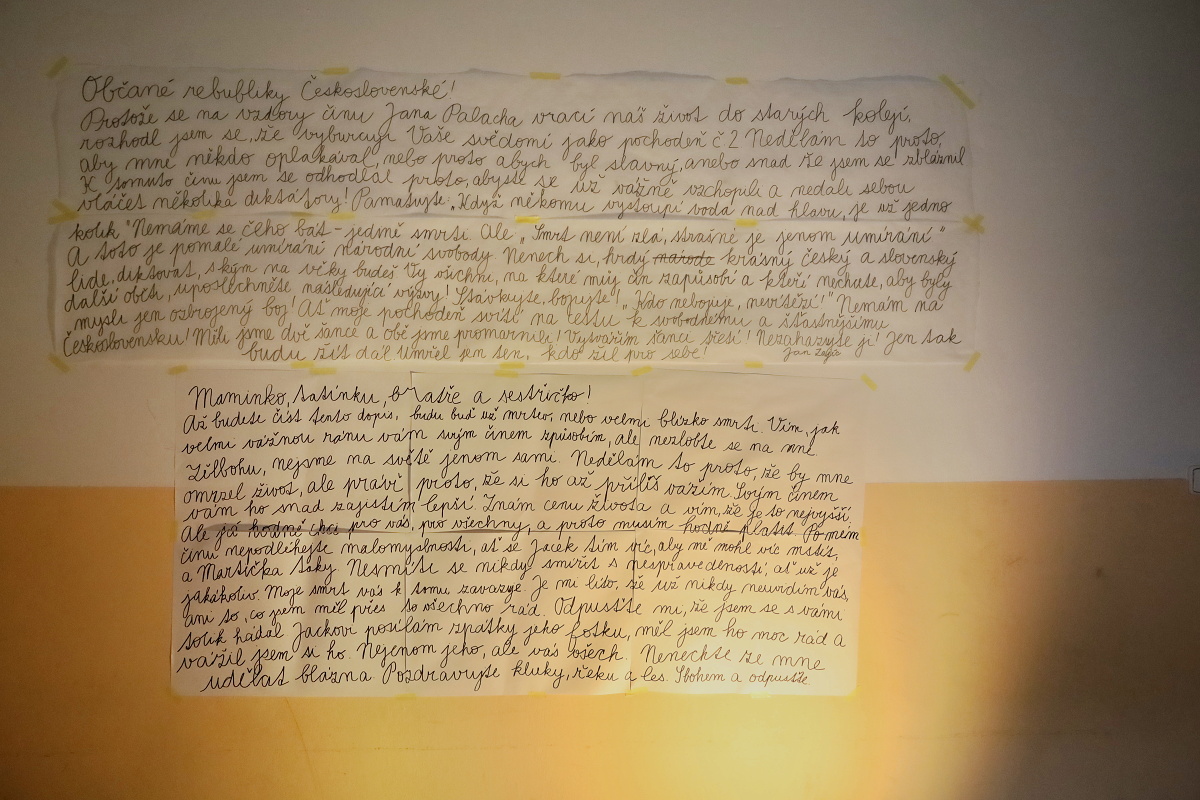 Občané rebubliky Československé!
Protože se na vzdory činu Jana Palacha vrací náš život do starých kolejí,
rozhodl jsem se, že vyburcuji Vaše svědomí jako pochodeň č.2 Nedělám to proto,
aby mne někdo oplakával, nebo proto abych byl slavný, anebo snad že jsem se zbláznil
K tomuto činu jsem se odhodlal proto, abyste se už vážně vzchopili a nedali sebou
vláčet několika diktátory! Pamatujte: „Když někomu vystoupí voda nad hlavu, je už jedno
kolik" Nemáme se čeho bát - jedině smrti. Ale „Smrt není zlá, strašné je jenom umírání"
A toto je pomalé umírání národní svobody. Nenech si, hrdý národe krásný český a slovenský
lide, diktovat, s kým na věky budeš Vy všichni, na které můj čin zapůsobí a kteří nechcete, aby byly
další oběti, uposlechněte následující výzvy! Stávkujte, bojujte! „Kdo nebojuje, nevítězí!" Nemám na
mysli jen ozbrojený boj! Ať moje pochodeň svítí na cestu k svobodnému a šťastnějšímu
Československu! Měli jsme dvě šance a obě jsme promarnili! Vytvářím šanci třetí! Nezahazujte ji! Jen tak
budu žít dál. Umřel jen ten, kdo žil pro sebe! Jan Zajíc
Maminko, tatínku, bratře a sestřičko!
Až budete číst tento dopis, budu buď už mrtev, nebo velmi blízko smrti. Vím, jak
velmi vážnou ránu vám svým činem způsobím, ale nezlobte se na mne.
Žilbohu, nejsme na světě jenom sami. Nedělám to proto, že by mne
omrzel život, ale právě proto, že si ho až příliš vážím Svým činem
vám ho snad zajistím lepší. Znám cenu života a vím, že je to nejvyšší.
Ale já hodně chci pro vás, pro všechny, a proto musím hodně platit. Po mém
činu nepodléhejte malomyslnosti, ať se Jacek tím víc, aby mě mohl víc mstít,
a Martička taky. Nesmíte se nikdy smířit s nespravedeností, ať už je
jakákoliv. Moje smrt vás k tomu zavazuje. Je mi líto, že už nikdy neuvidím vás,
ani to, co jsem měl přes to všechno rád. Odpusťte mi, že jsem se s vámi
tolik hádal Jackovi posílám zpátky jeho fotku, měl jsem ho moc rád a
vážil jsem si ho. Nejenom jeho, ale vás všech. Nenechte ze mne
udělat blázna. Pozdravujte kluky, řeku a les. Sbohem a odpusťte